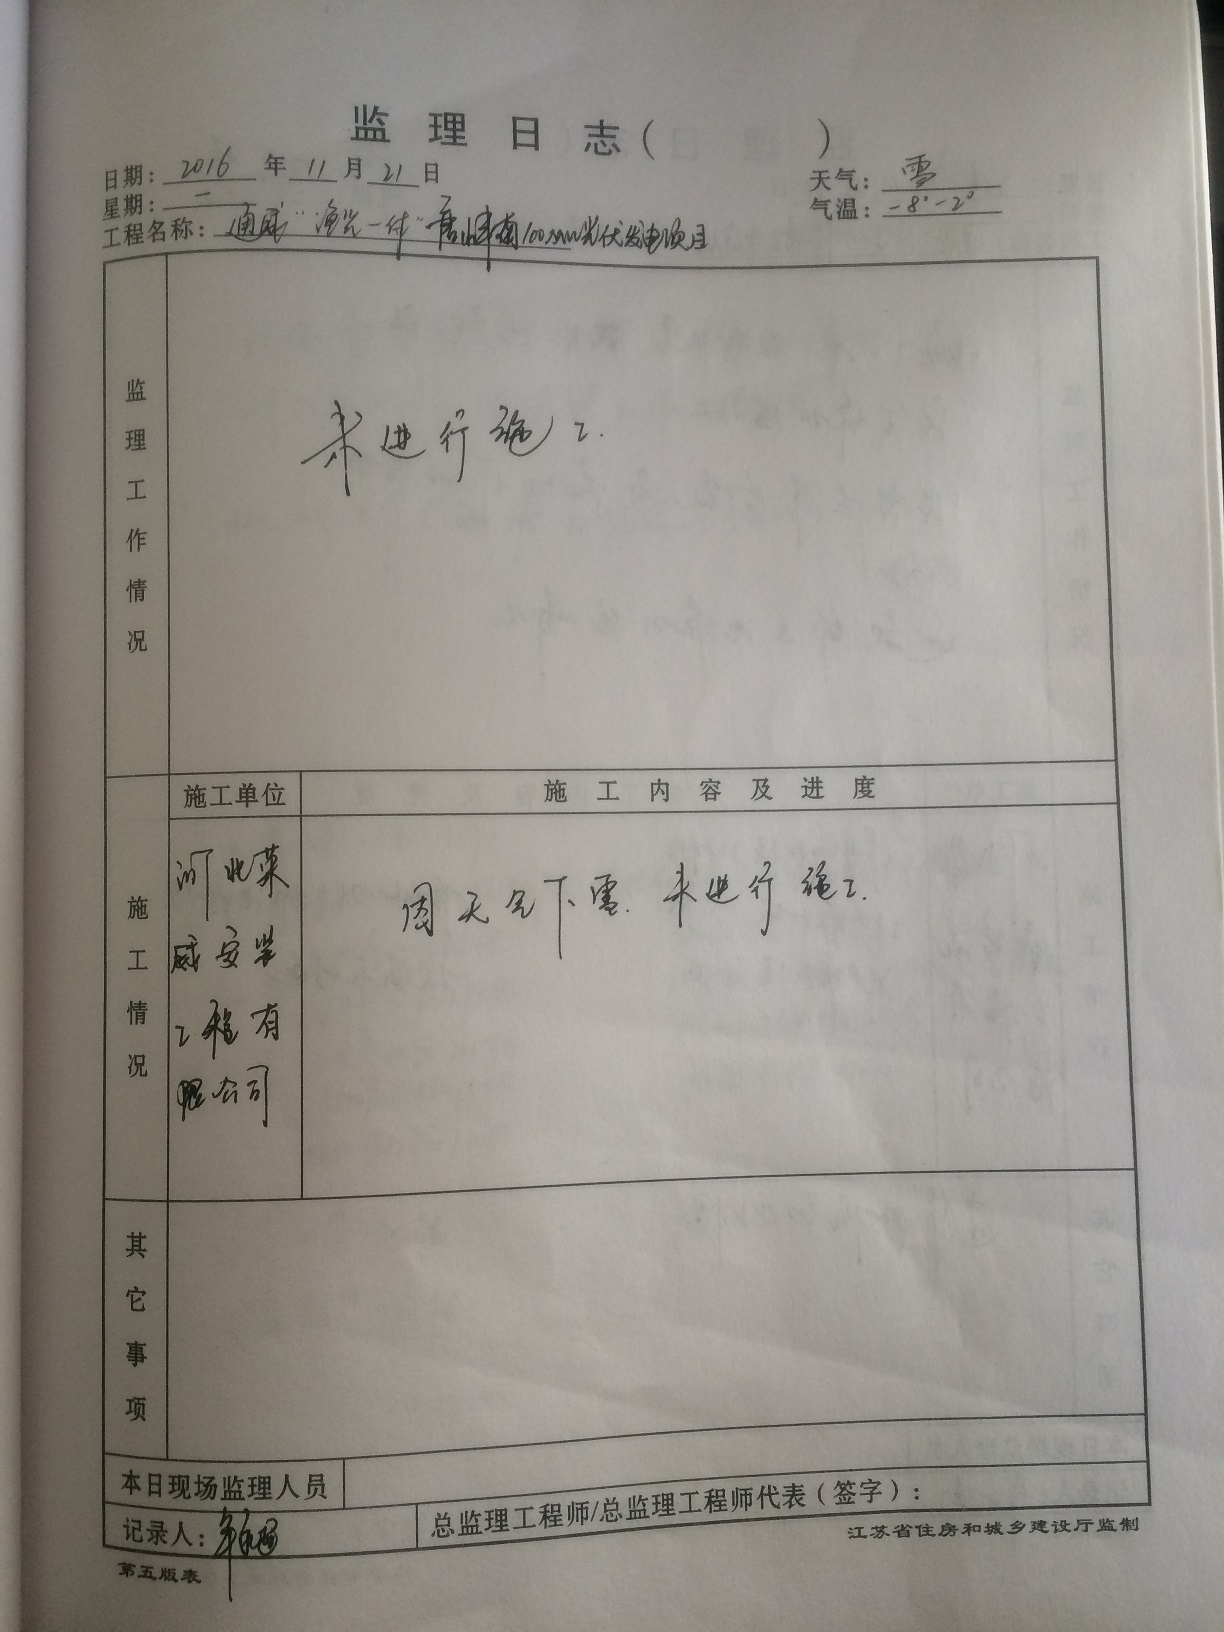 监理日志(        )
日期: 2016 年 11 月 21 日
天气: 雪
星期: 一
气温: -8°-2°
工程名称: 通威"渔光一体"唐山丰南100MW光伏发电项目
监理工作情况
未进行施工.
施工单位
施工内容及进度
施工情况
河北
安装
工程有
限公司
因天气下雪.未进行施工.
其它事项
本日现场监理人员
记录人:
总监理工程师/总监理工程师代表(签字):
江苏省住房和城乡建设厅监制
第五版表